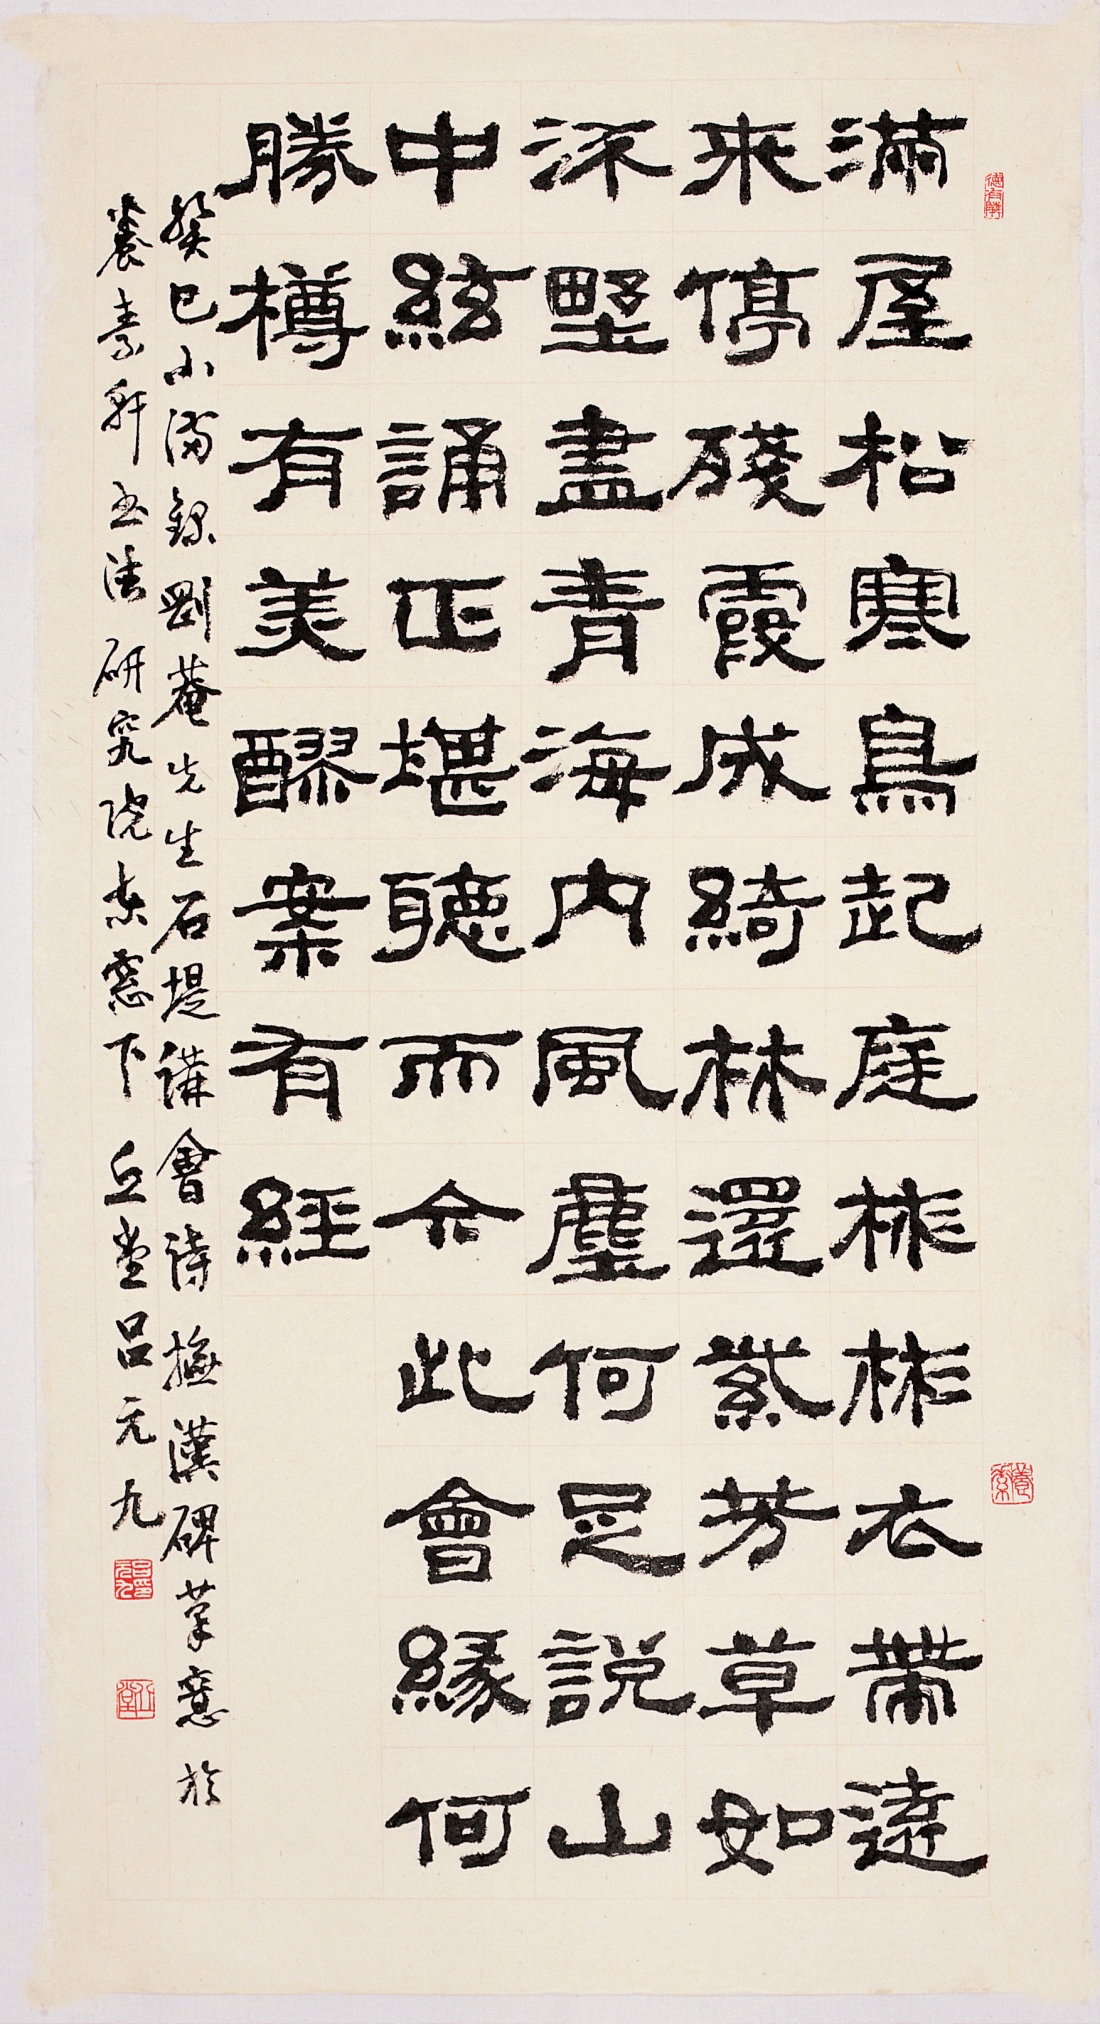 滿屋松寒鳥起庭彬彬衣帶遠
來停殘霞成綺林還紫芳草如
沐野盡青海內風塵何足說山
中絃誦正堪聽而今此會緣何
勝樽有美醪案有經
癸巳小滿錄剛菴先生石堤講會詩撫漢碑筆意於
養素軒書法研究院東窓下 丘堂呂元九
養素
呂元九印
丘堂